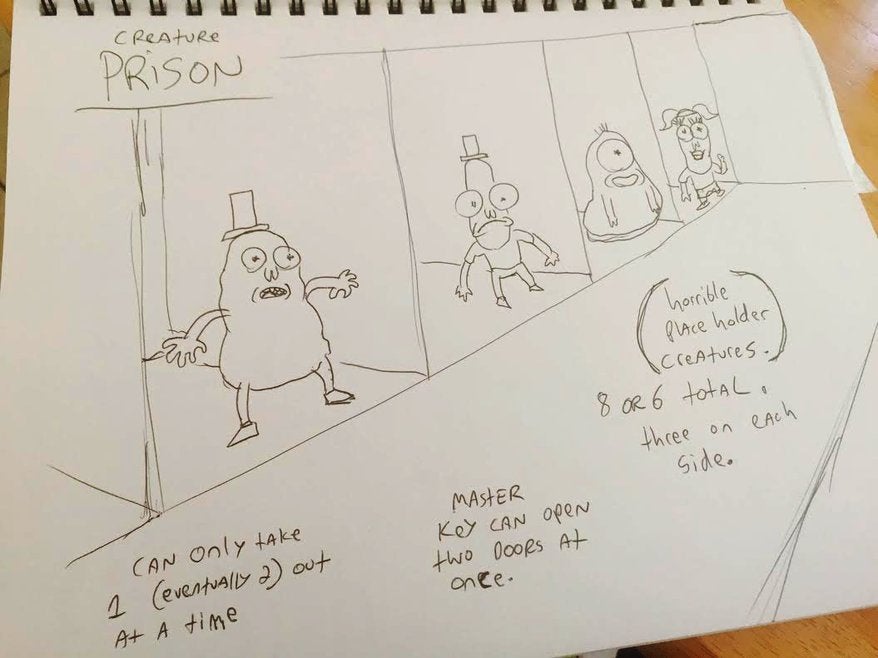 CREATURE
PRISON
(horrible
place holder
creatures.)
8 OR 6 total.
three on each
side.
MASTER
Key CAN open
two Doors At
once.
CAN only take
1 (eventually 2) out
At A time